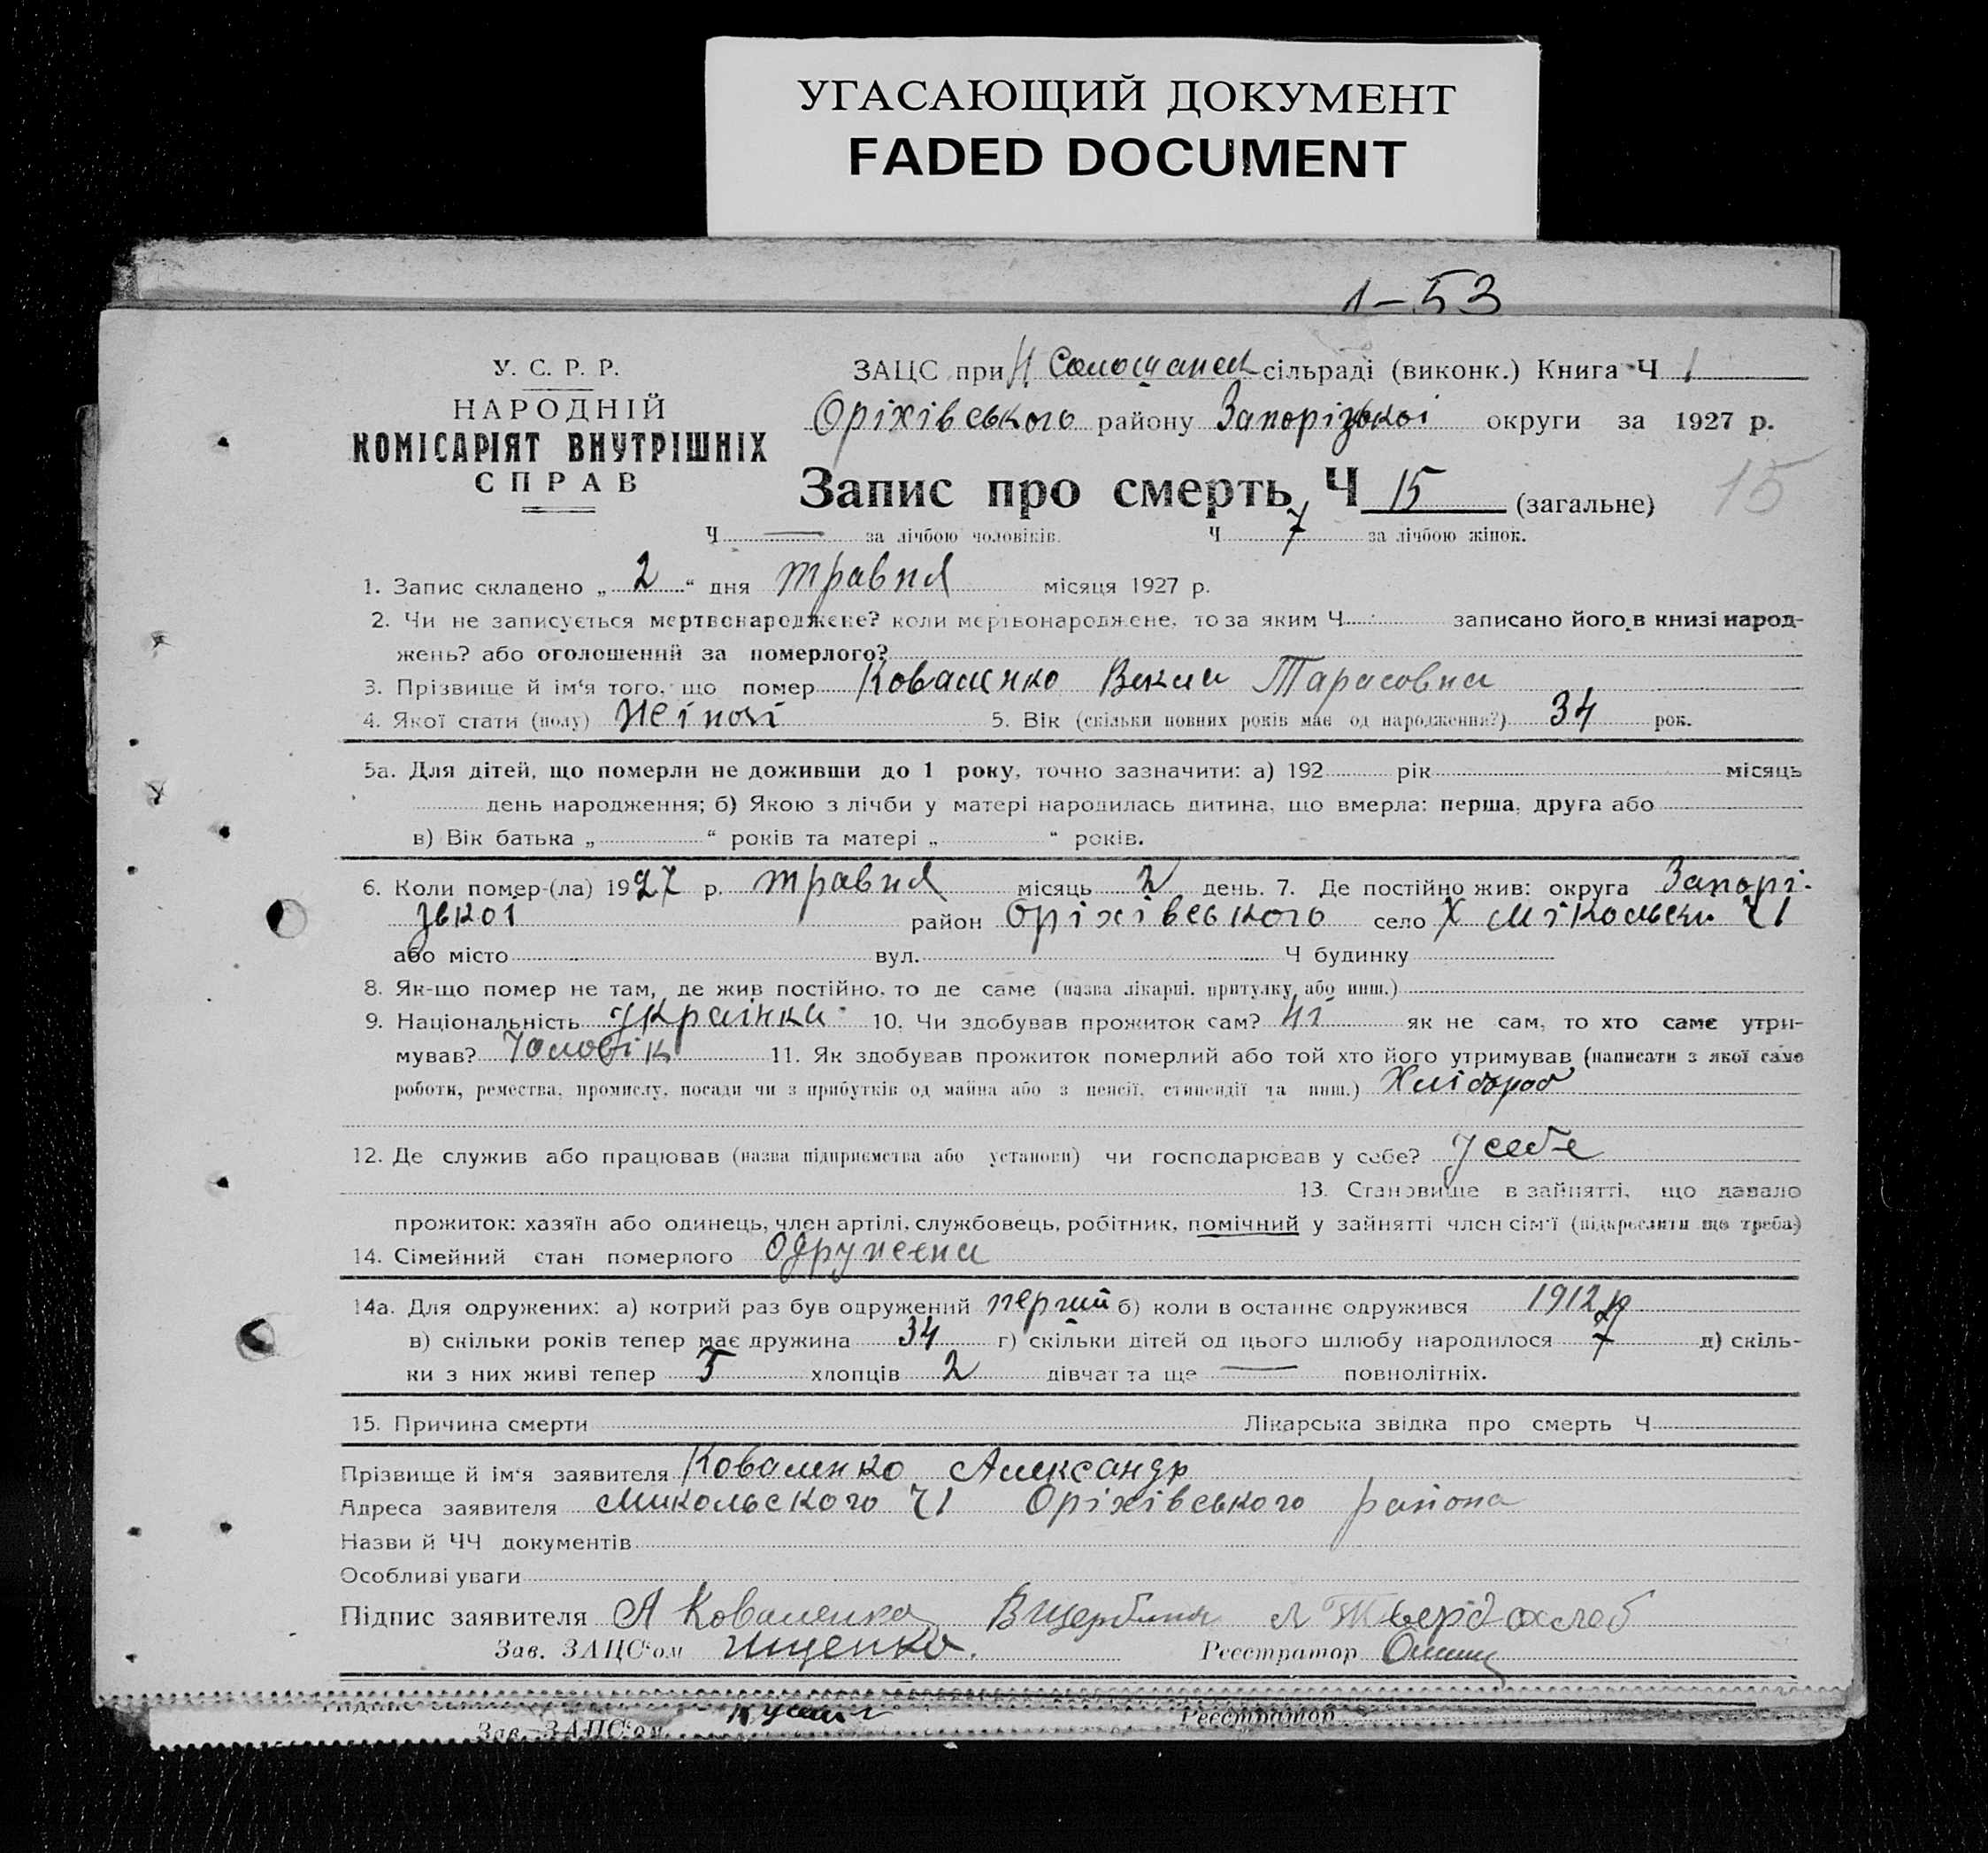 УГАСАЮЩИЙ ДОКУМЕНТ
FADED DOCUMENT
1-53
У. С. Р. Р.
НАРОДНІЙ
КОМІСАРІЯТ ВНУТРІШНІХ
СПРАВ
ЗАЦС при сільраді (виконк.) Книга Ч 1
Оріхівського району Запорізької округи за 1927 р.
Запис про смерть Ч 15 (загальне)
15
Ч — за лічбою чоловіків. Ч 7 за лічбою жінок.
1. Запис складено „ 2 “ дня травня місяця 1927 р.
2. Чи не записується мертвонароджене? коли мертвонароджене, то за яким Ч записано його в книзі народ-
жень? або оголошений за померлого?
3. Прізвище й ім‘я того, що помер Коваленко Тарасовна
4. Якої стати (полу) 5. Вік (скільки повних років має од народження?) 34 рок.
5а. Для дітей, що померли не доживши до 1 року, точно зазначити: а) 192 рік місяць
день народження; б) Якою з лічби у матері народилась дитина, що вмерла: перша, друга або
в) Вік батька „ “ років та матері „ “ років.
6. Коли помер-(ла) 1927 р. травня місяць 2 день. 7. Де постійно жив: округа Запорі-
зької район Оріхівського село Х
або місто вул. Ч будинку
8. Як-що помер не там, де жив постійно, то де саме (назва лікарні, притулку або инш.)
9. Національність Українка 10. Чи здобував прожиток сам? Ні як не сам, то хто саме утри-
мував? Чоловік 11. Як здобував прожиток померлий або той хто його утримував (написати з якої саме
роботи, ремества, промислу, посади чи з прибутків од майна або з пенсії, стипендії та инш.) Хлібороб
12. Де служив або працював (назва підприємства або установи) чи господарював у себе? У себе
13. Становище в зайнятті, що давало
прожиток: хазяїн або одинець, член артілі, службовець, робітник, помічний у зайнятті член сім‘ї (підкреслити що треба)
14. Сімейний стан померлого Одружена
14а. Для одружених: а) котрий раз був одружений перший б) коли в останнє одружився 1912 р
в) скільки років тепер має дружина 34 г) скільки дітей од цього шлюбу народилося 7 д) скіль-
ки з них живі тепер 5 хлопців 2 дівчат та ще — повнолітніх.
15. Причина смерти Лікарська звідка про смерть Ч
Прізвище й ім‘я заявителя Коваленко Александр
Адреса заявителя Микольского Ч1 Оріхівського района
Назви й ЧЧ документів
Особливі уваги
Підпис заявителя А Коваленко В Щербина Л Твердохлеб
Зав. ЗАЦС‘ом Ищенко. Реєстратор
Підпис
Зав. ЗАЦС‘ом Реєстратор